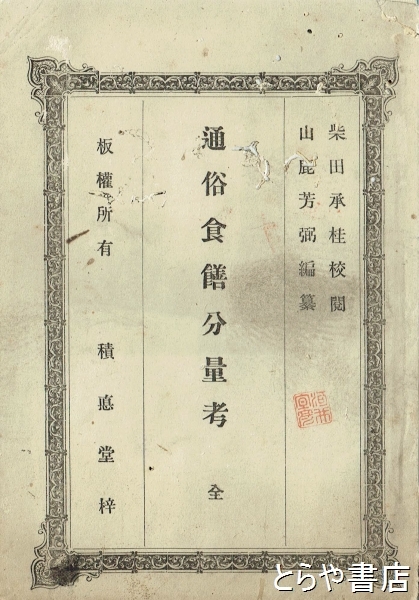 柴田承桂校閲
山鹿芳弼編纂
通俗食饍分量考 全
板權所有 積 堂梓
とらや書店